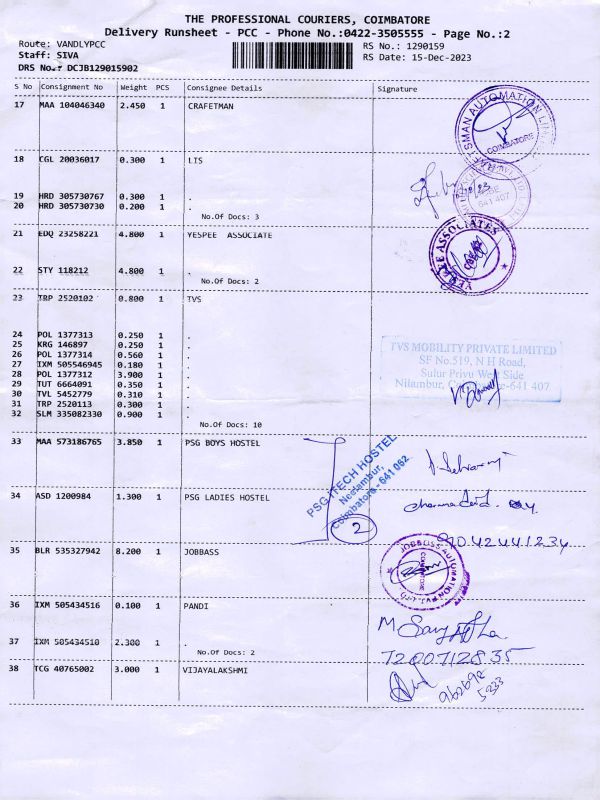 THE PROFESSIONAL COURIERS, COIMBATORE
Delivery Runsheet - PCC - Phone No.:0422-3505555 - Page No.:2
Route: VANDLYPCC
RS No.: 1290159
Staff: SIVA
RS Date: 15-Dec-2023
DRS No.: DCJB129015902
S No Consignment No Weight PCS Consignee Details Signature
17 MAA 104046340 2.450 1 CRAFETMAN
COIMBATORE
18 CGL 20036017 0.300 1 LIS
641 407
19 HRD 305730767 0.300 1 .
20 HRD 305730730 0.200 1 .
No.Of Docs: 3
21 EDQ 23258221 4.800 1 YESPEE ASSOCIATE
YESPEE ASSOCIATES
22 STY 118212 4.800 1 .
No.Of Docs: 2
23 TRP 2520102 0.800 1 TVS
24 POL 1377313 0.250 1 .
25 KRG 146897 0.250 1 .
26 POL 1377314 0.560 1 .
27 IXM 505546945 0.180 1 .
28 POL 1377312 3.900 1 .
29 TUT 6664091 0.350 1 .
30 TVL 5452779 0.310 1 .
31 TRP 2520113 0.300 1 .
32 SLM 335082330 0.900 1 .
No.Of Docs: 10
TVS MOBILITY PRIVATE LIMITED
SF No.519, N H Road,
Sulur Privu West Side
Nilambur, 641 407
33 MAA 573186765 3.850 1 PSG BOYS HOSTEL
PSG ITECH HOSTEL
Neelambur,
Coimbatore - 641 062
34 ASD 1200984 1.300 1 PSG LADIES HOSTEL
2
9042441234
35 BLR 535327942 8.200 1 JOBBASS
JOBBOSS AUTOMATION PVT. LTD
36 IXM 505434516 0.100 1 PANDI
37 IXM 505434510 2.300 1 .
No.Of Docs: 2
7200712835
38 TCG 40765002 3.000 1 VIJAYALAKSHMI
962692
5233